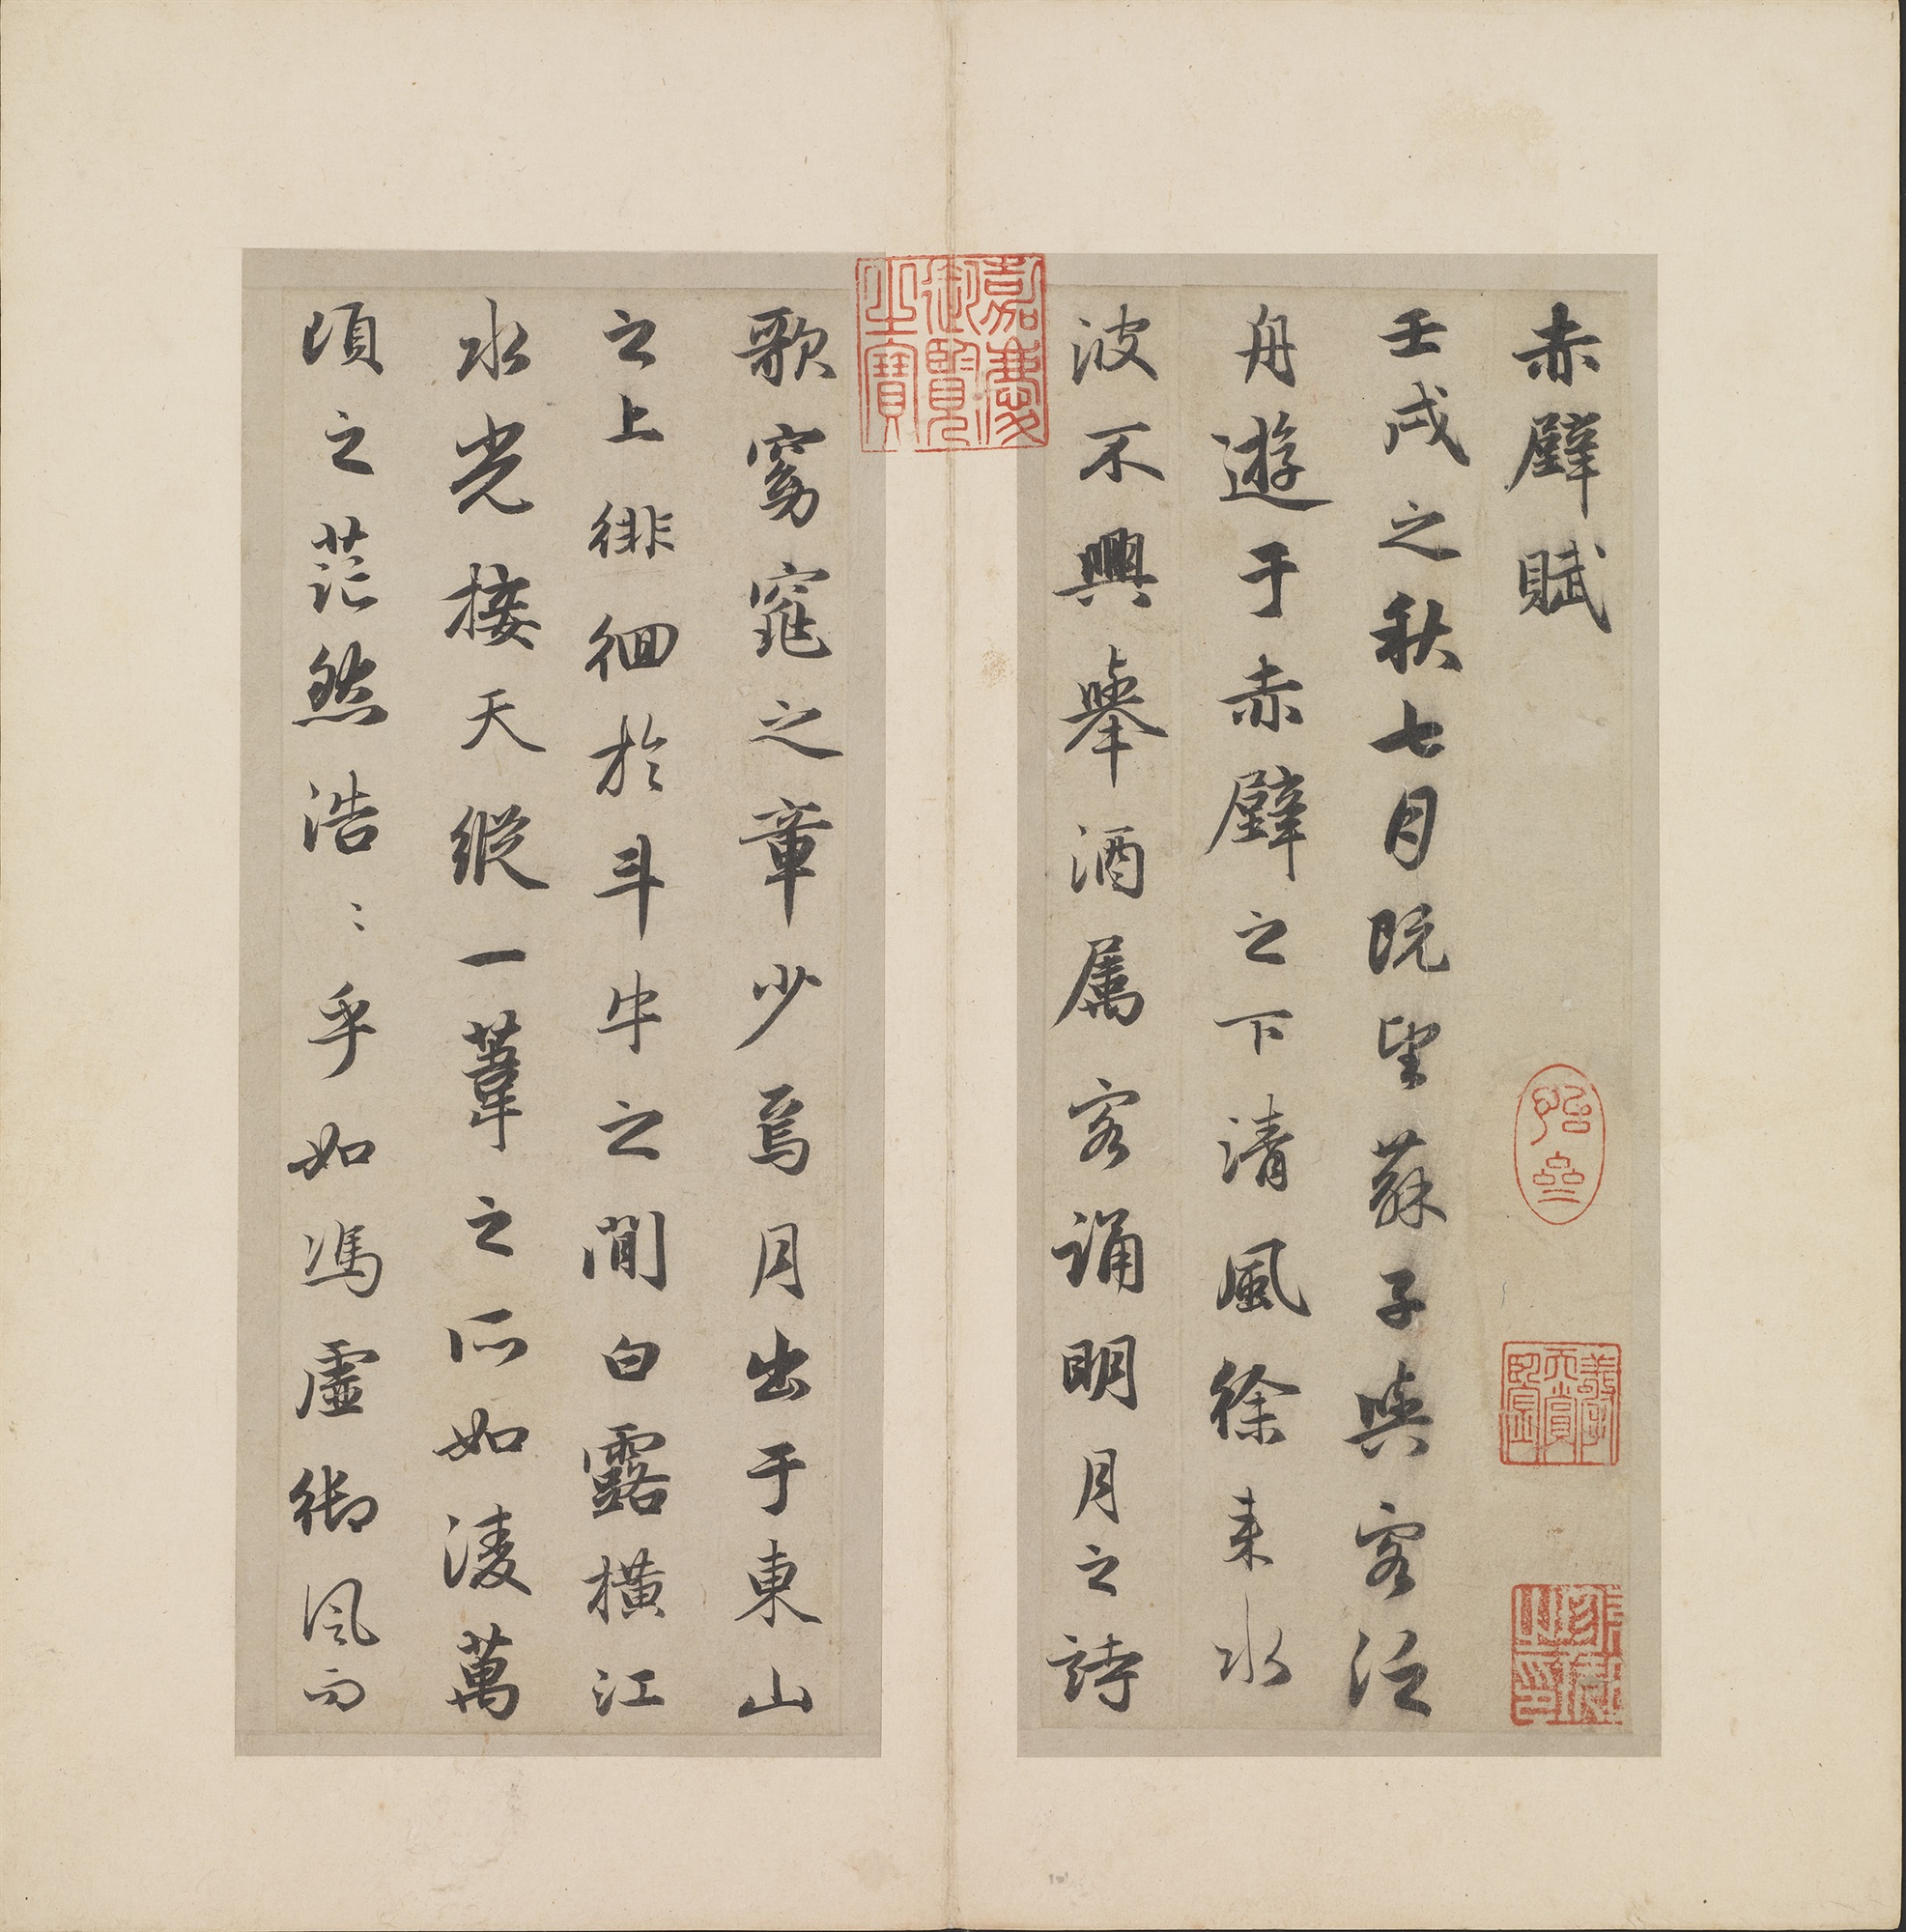 赤壁賦
壬戌之秋七月既望蘇子與客泛
舟遊于赤壁之下清風徐來水
波不興舉酒屬客誦明月之詩
嘉慶御覽之寶
歌窈窕之章少焉月出于東山
之上徘徊於斗牛之閒白露橫江
水光接天縱一葦之所如淩萬
頃之茫然浩〻乎如馮虛御風而